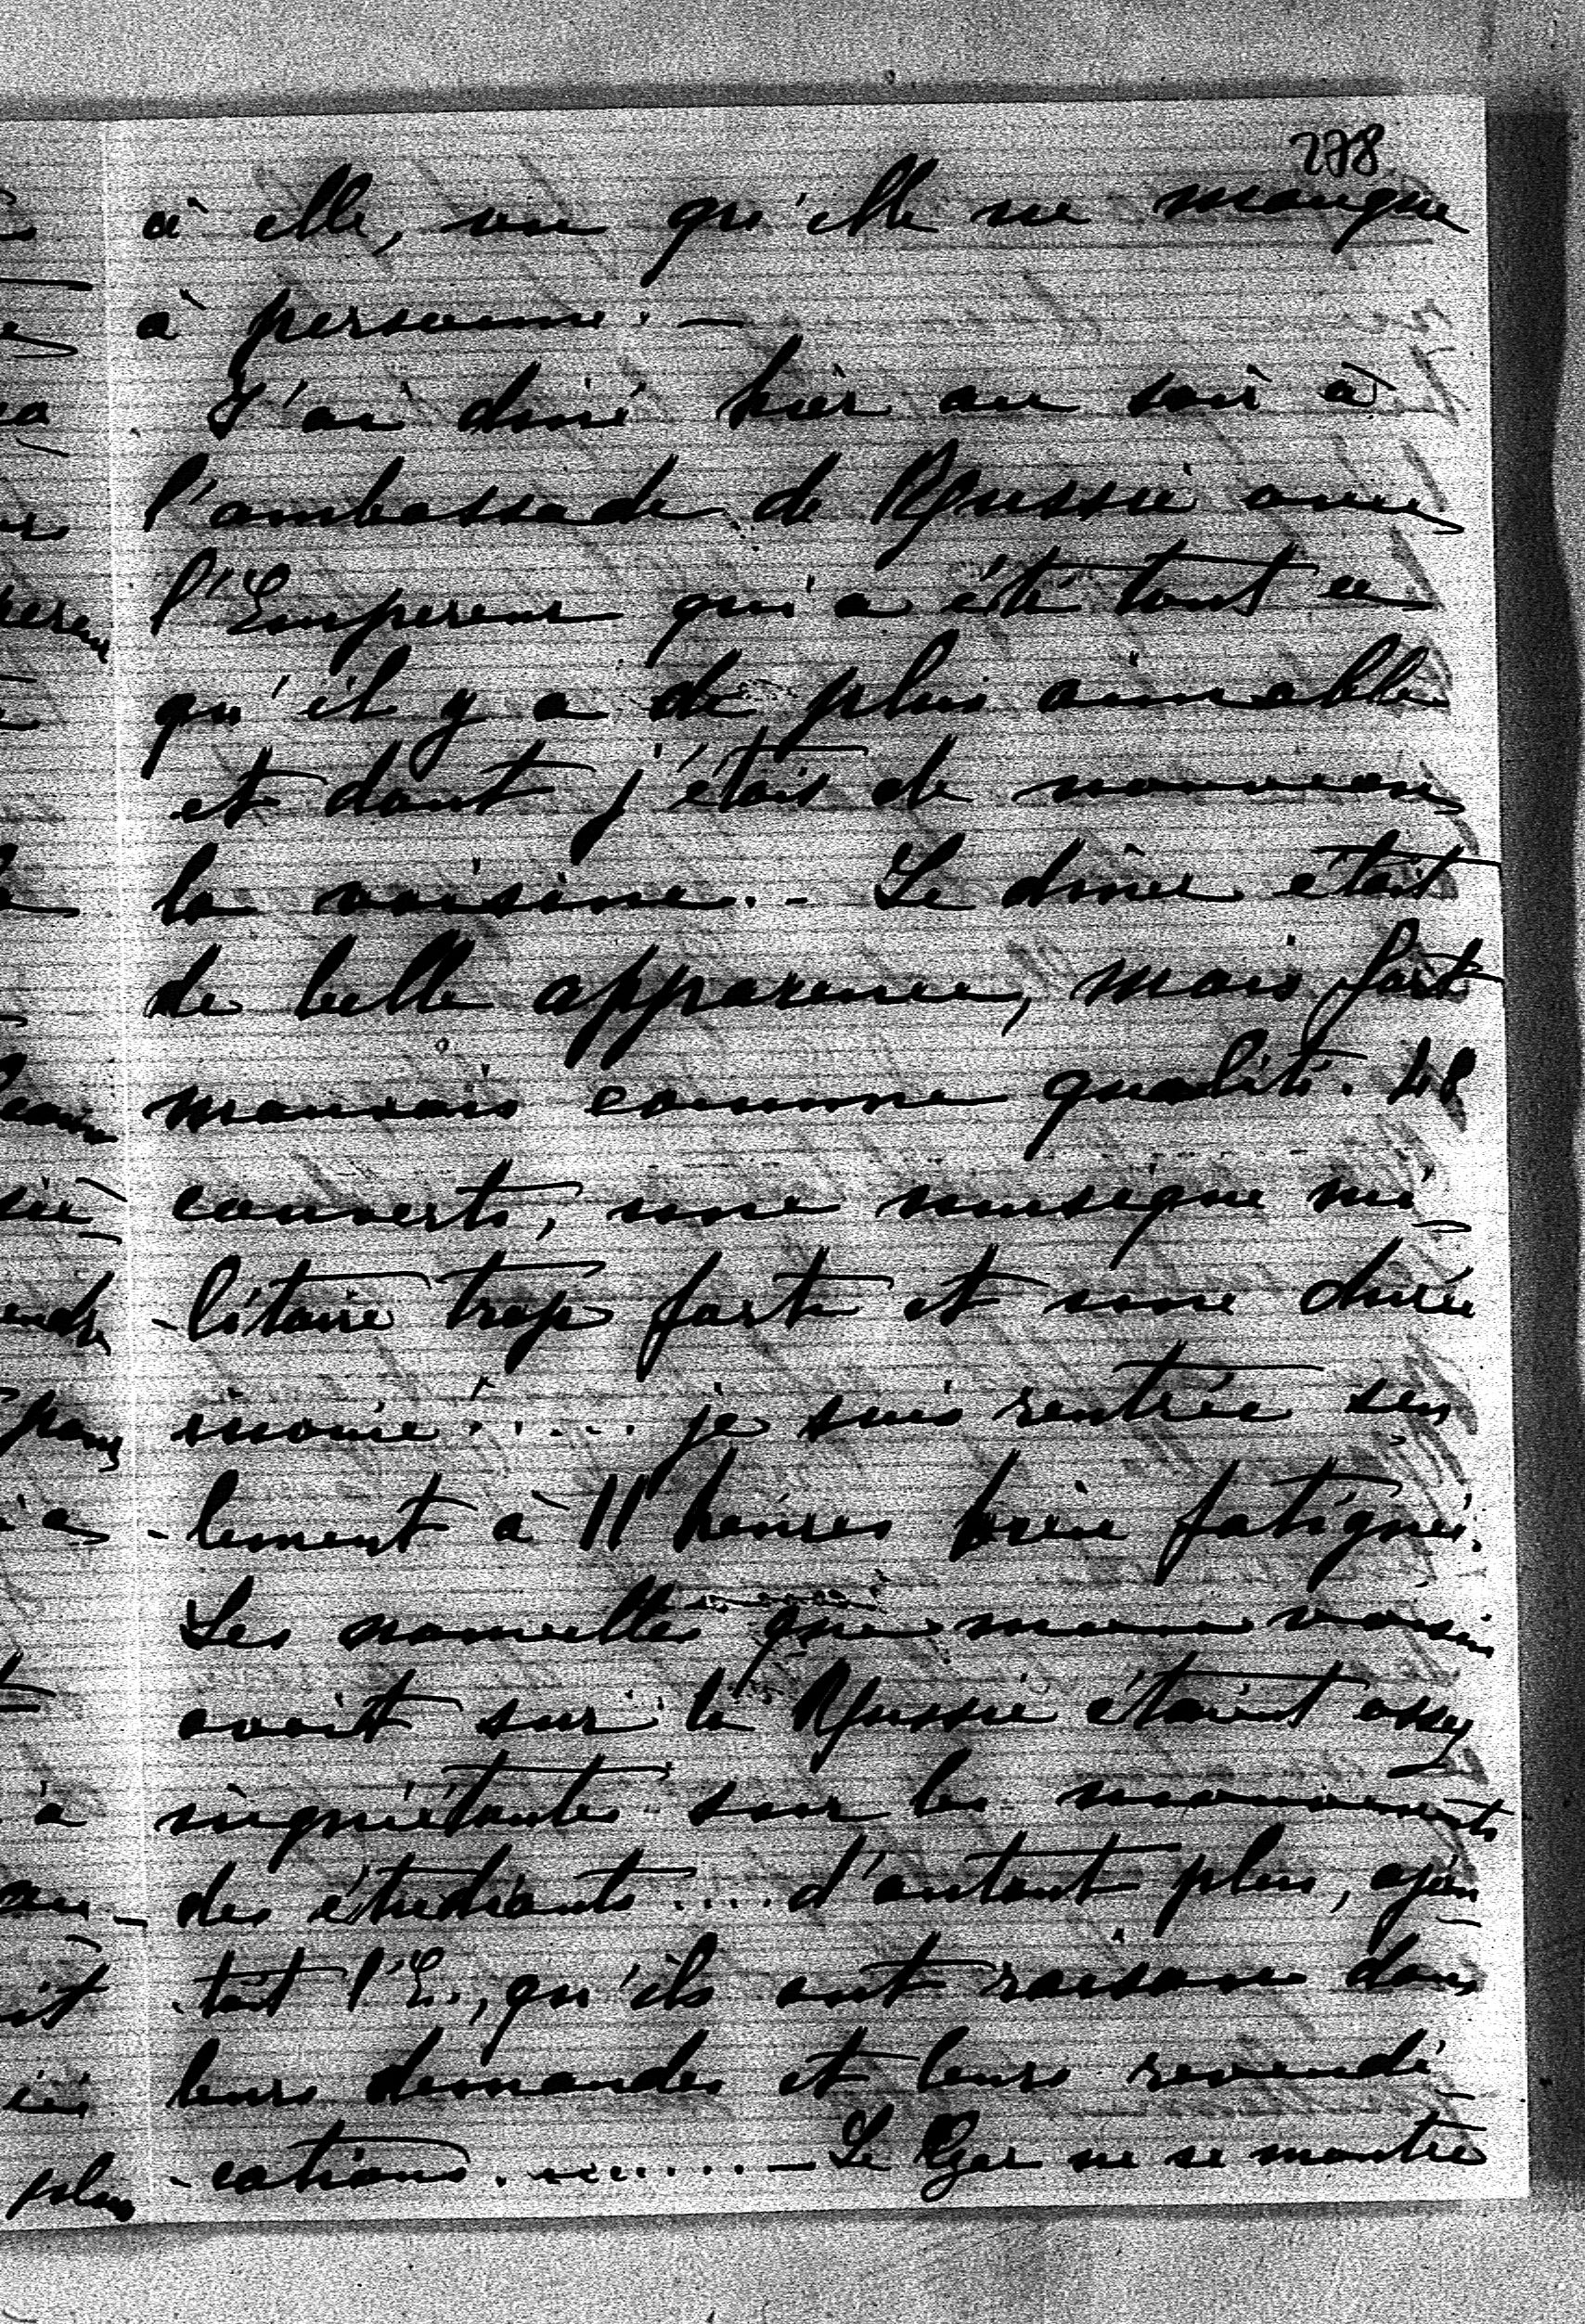 278
à elle, vu qu'elle ne manque
à personne. —
J'ai diné hier au soir à
l'ambassade de Russie avec
l'Empereur qui a été tout ce
qu'il y a de plus aimable
et dont j'étais de nouveau
la voisine. - Le dîner était
de belle apparence, mais fort
mauvais comme qualité. 48
couverts, une musique mi-
-litaire trop forte et une durée
inouïe...... je suis rentrée seu-
-lement à 11 heures bien fatiguée.
Les nouvelles que mon voisin
avait sur la Russie étaient assez
inquiétantes sur les mouvements
des étudiants .... d'autant plus, ajou-
-tait l'E., qu'ils ont raison dans
leurs demandes et leurs revendi-
-cations. ........ — Le ne se montre